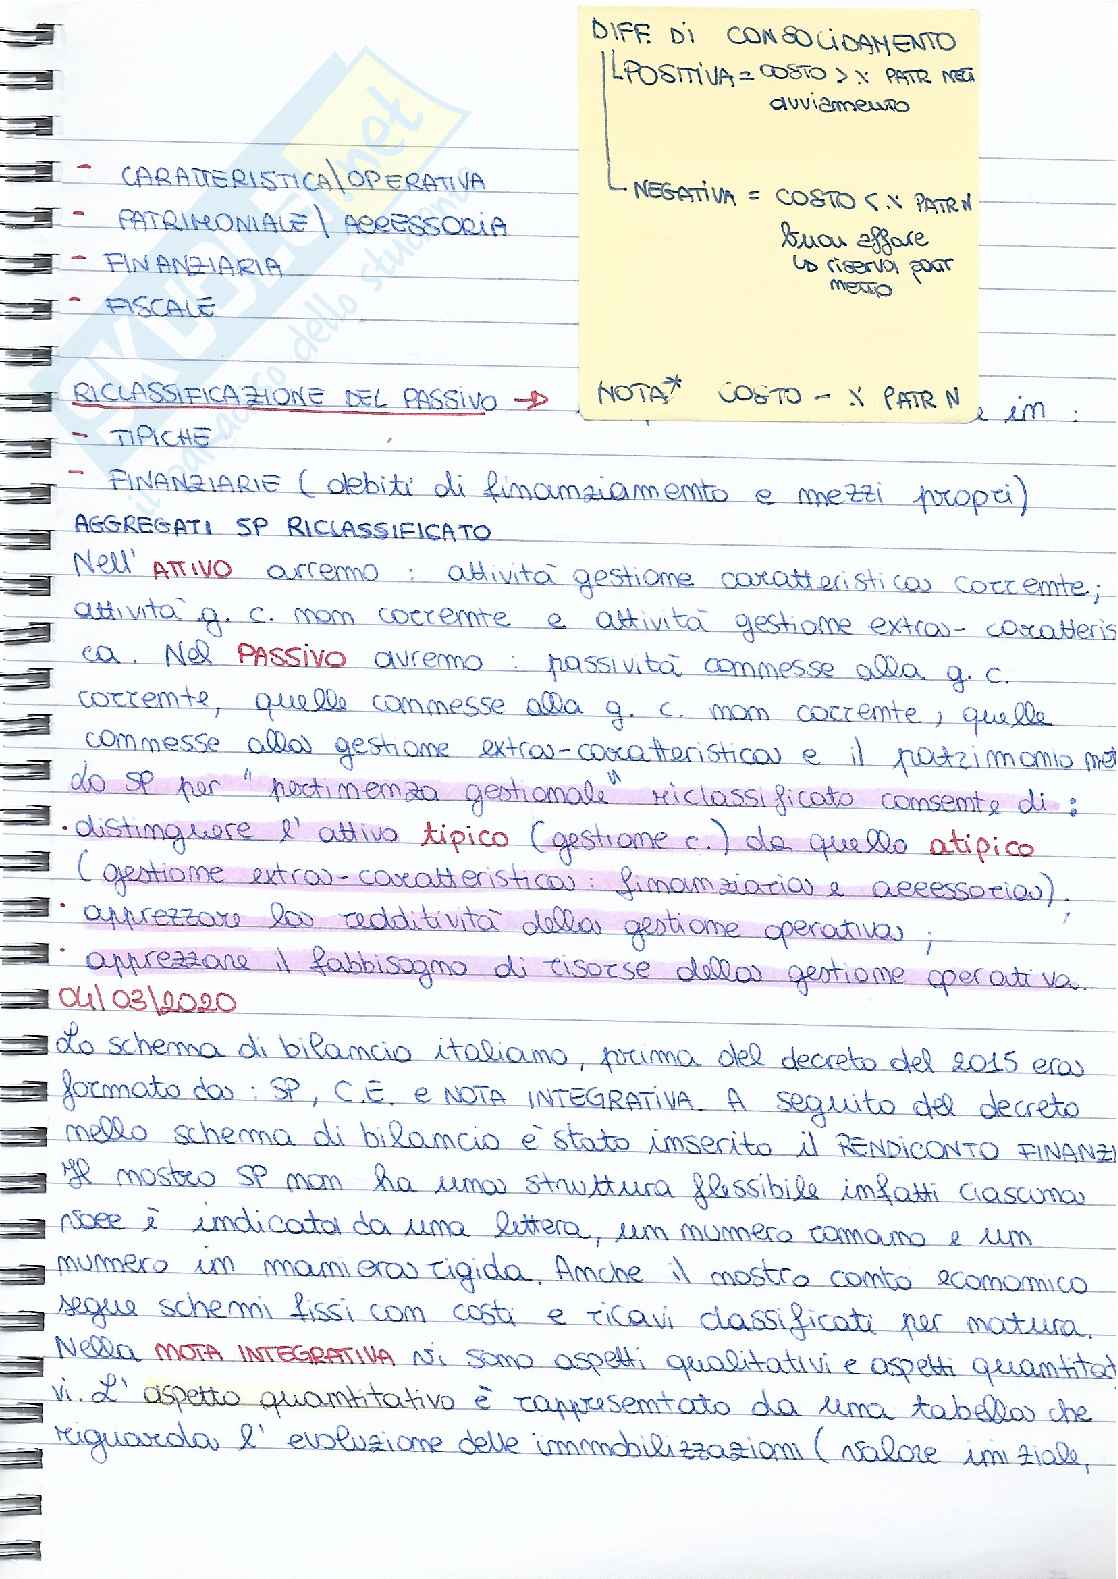 DIFF. DI CONSOLIDAMENTO
POSITIVA = COSTO > X PATR NET
avviamento
NEGATIVA = COSTO < X PATR N
buon affare
↳ riserva patr
netto
NOTA* COSTO - X PATR N
- CARATTERISTICA\OPERATIVA
- PATRIMONIALE\ACCESSORIA
- FINANZIARIA
- FISCALE
RICLASSIFICAZIONE DEL PASSIVO → e in :
- TIPICHE
- FINANZIARIE (debiti di finanziamento e mezzi propri)
AGGREGATI SP RICLASSIFICATO
Nell' ATTIVO avremo : attività gestione caratteristica corrente;
attività g. c. non corrente e attività gestione extra-caratteris
ca. Nel PASSIVO avremo : passività connesse alla g. c.
corrente, quelle connesse alla g. c. non corrente, quelle
connesse alla gestione extra-caratteristica e il patrimonio net
Lo SP per "pertinenza gestionale" riclassificato consente di :
· distinguere l' attivo tipico (gestione c.) da quello atipico
(gestione extra-caratteristica: finanziaria e accessoria).
· apprezzare la redditività della gestione operativa;
· apprezzare il fabbisogno di risorse della gestione operativa.
04\03\2020
Lo schema di bilancio italiano, prima del decreto del 2015 era
formato da : SP, C.E. e NOTA INTEGRATIVA. A seguito del decreto
nello schema di bilancio è stato inserito il RENDICONTO FINANZI
Il nostro SP non ha una struttura flessibile infatti ciascuna
voce è indicata da una lettera, un numero romano e un
numero in maniera rigida. Anche il nostro conto economico
segue schemi fissi con costi e ricavi classificati per natura.
Nella NOTA INTEGRATIVA vi sono aspetti qualitativi e aspetti quantitat
vi. L' aspetto quantitativo è rappresentato da una tabella che
riguarda l' evoluzione delle immobilizzazioni (valore iniziale,
SKUOLA.net
il paradiso dello studente